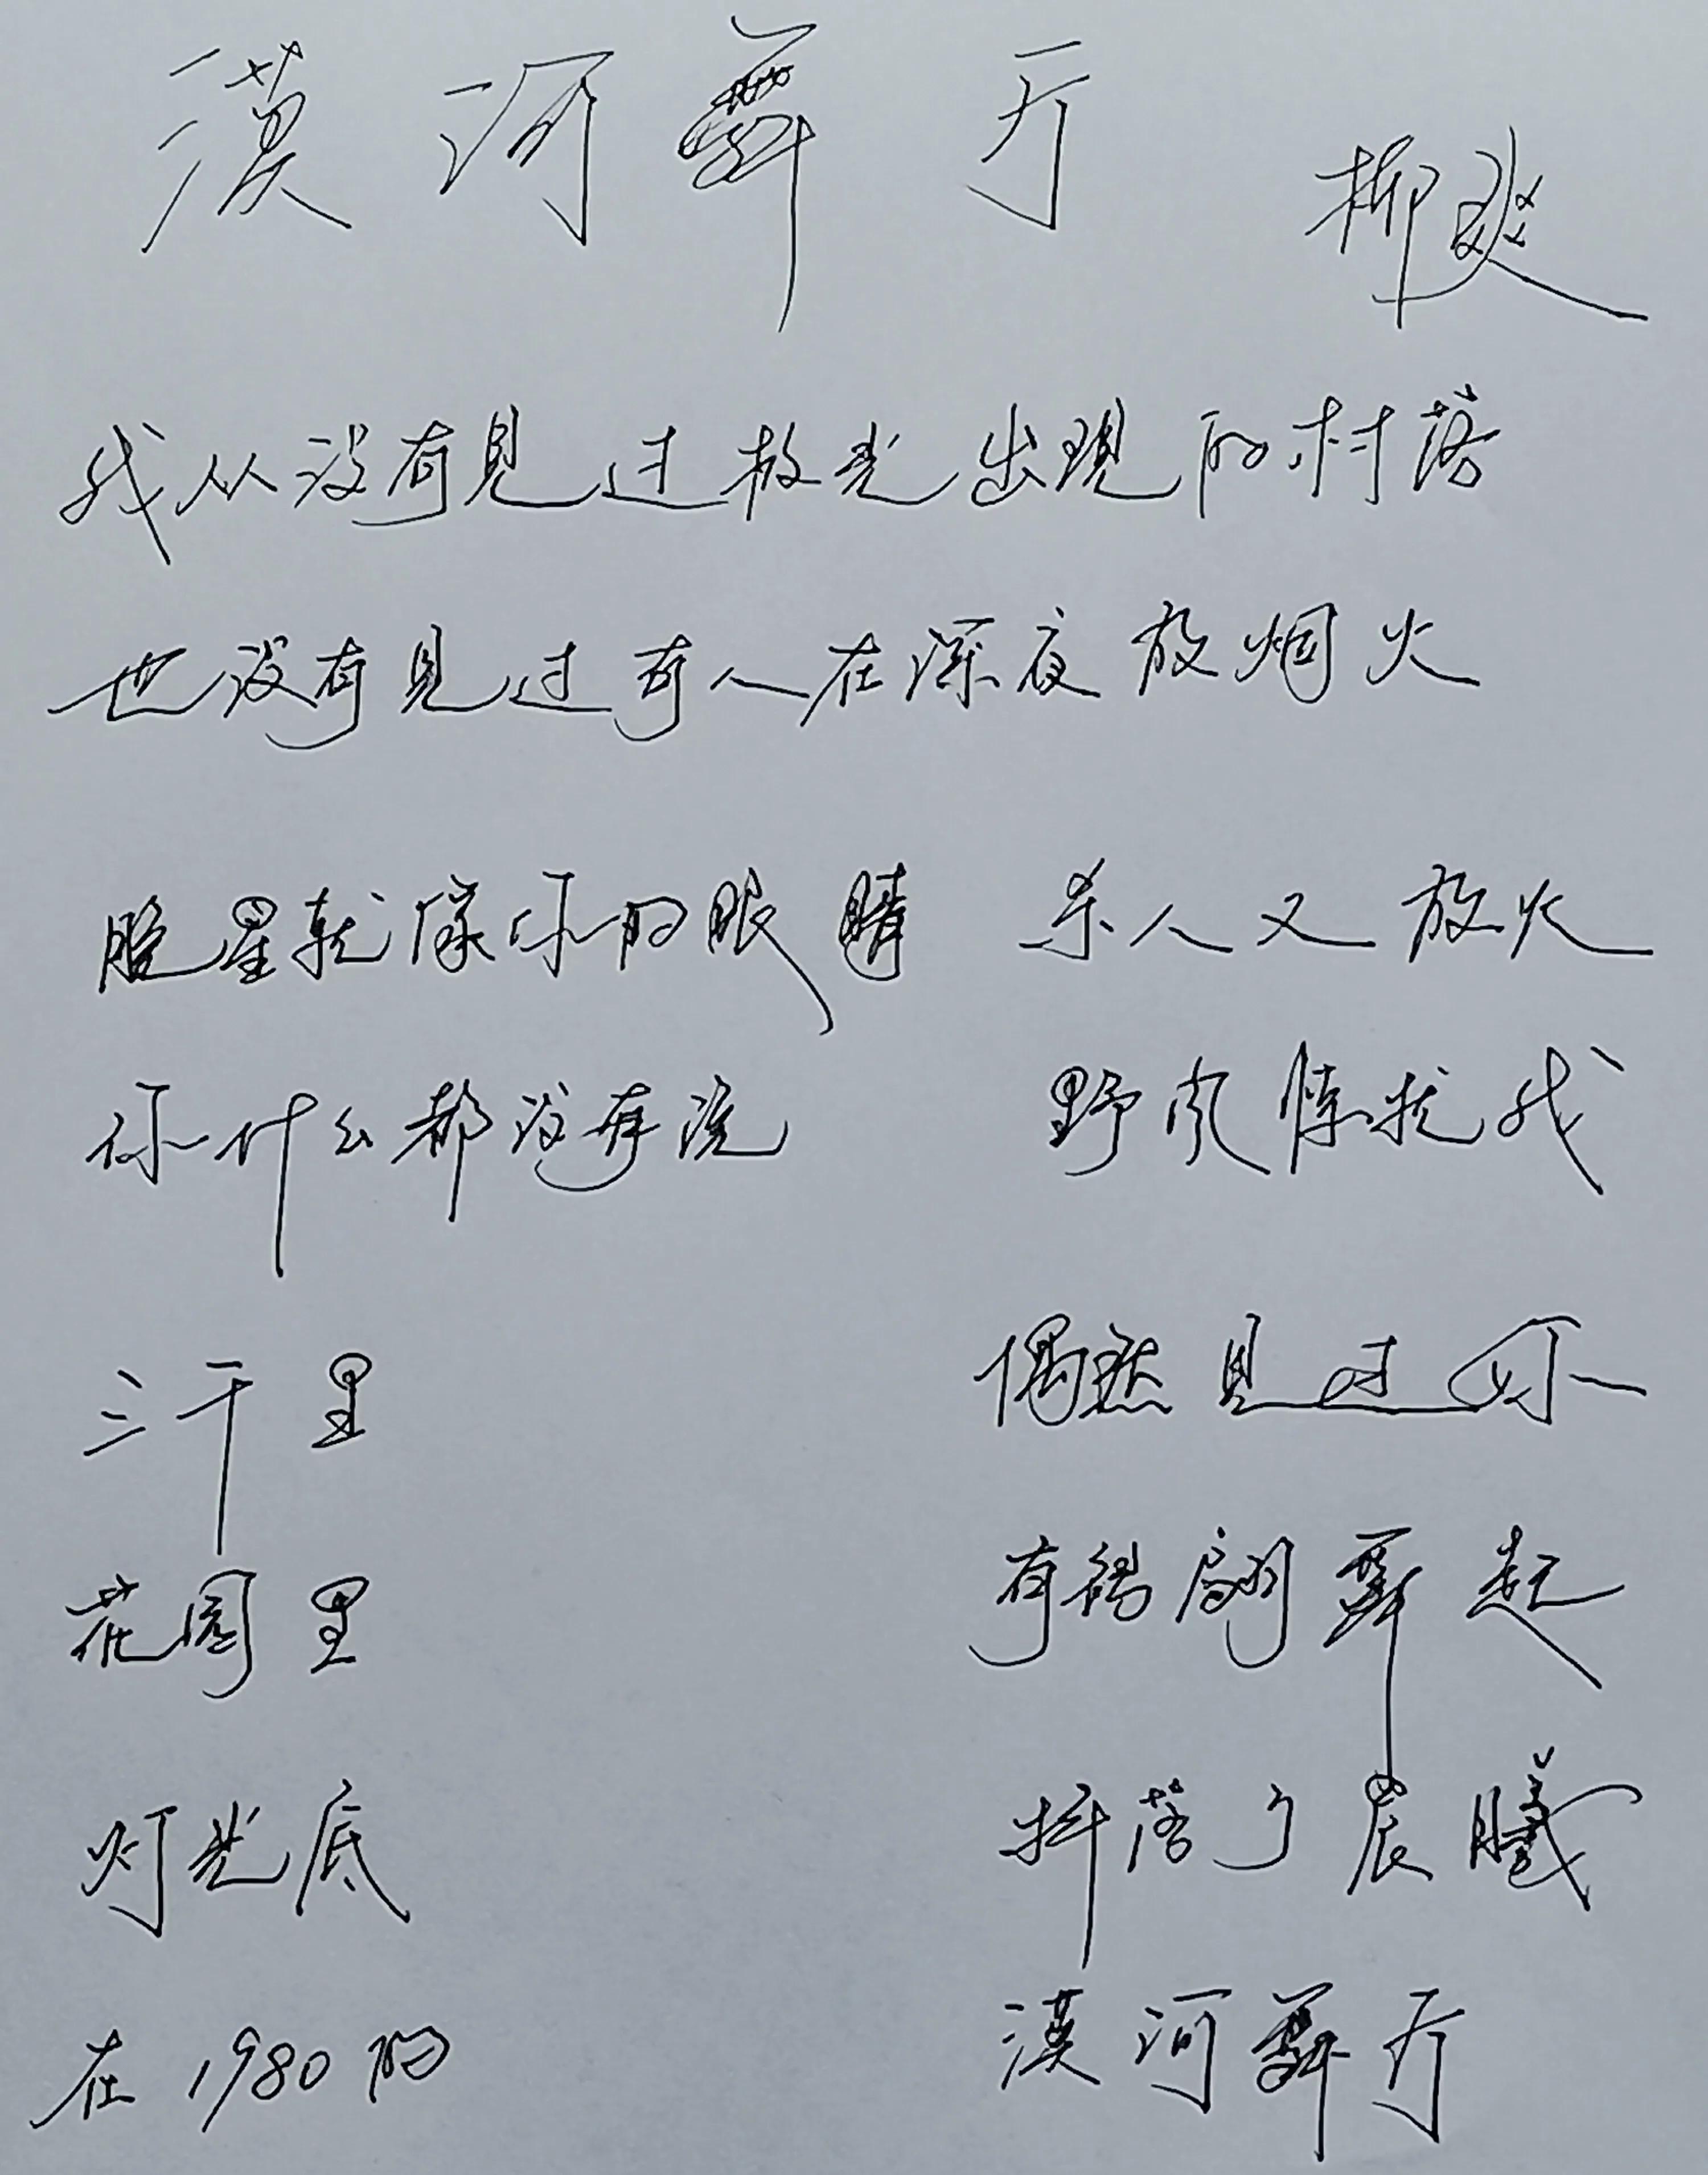 漠河舞厅
柳爽
我从没有见过极光出现的村落
也没有见过有人在深夜放烟火
晚星就像你的眼睛 杀人又放火
你什么都没有说 野风惊扰我
三千里 偶然见过你
花园里 有裙翩舞起
灯光底 抖落了晨曦
在1980的 漠河舞厅